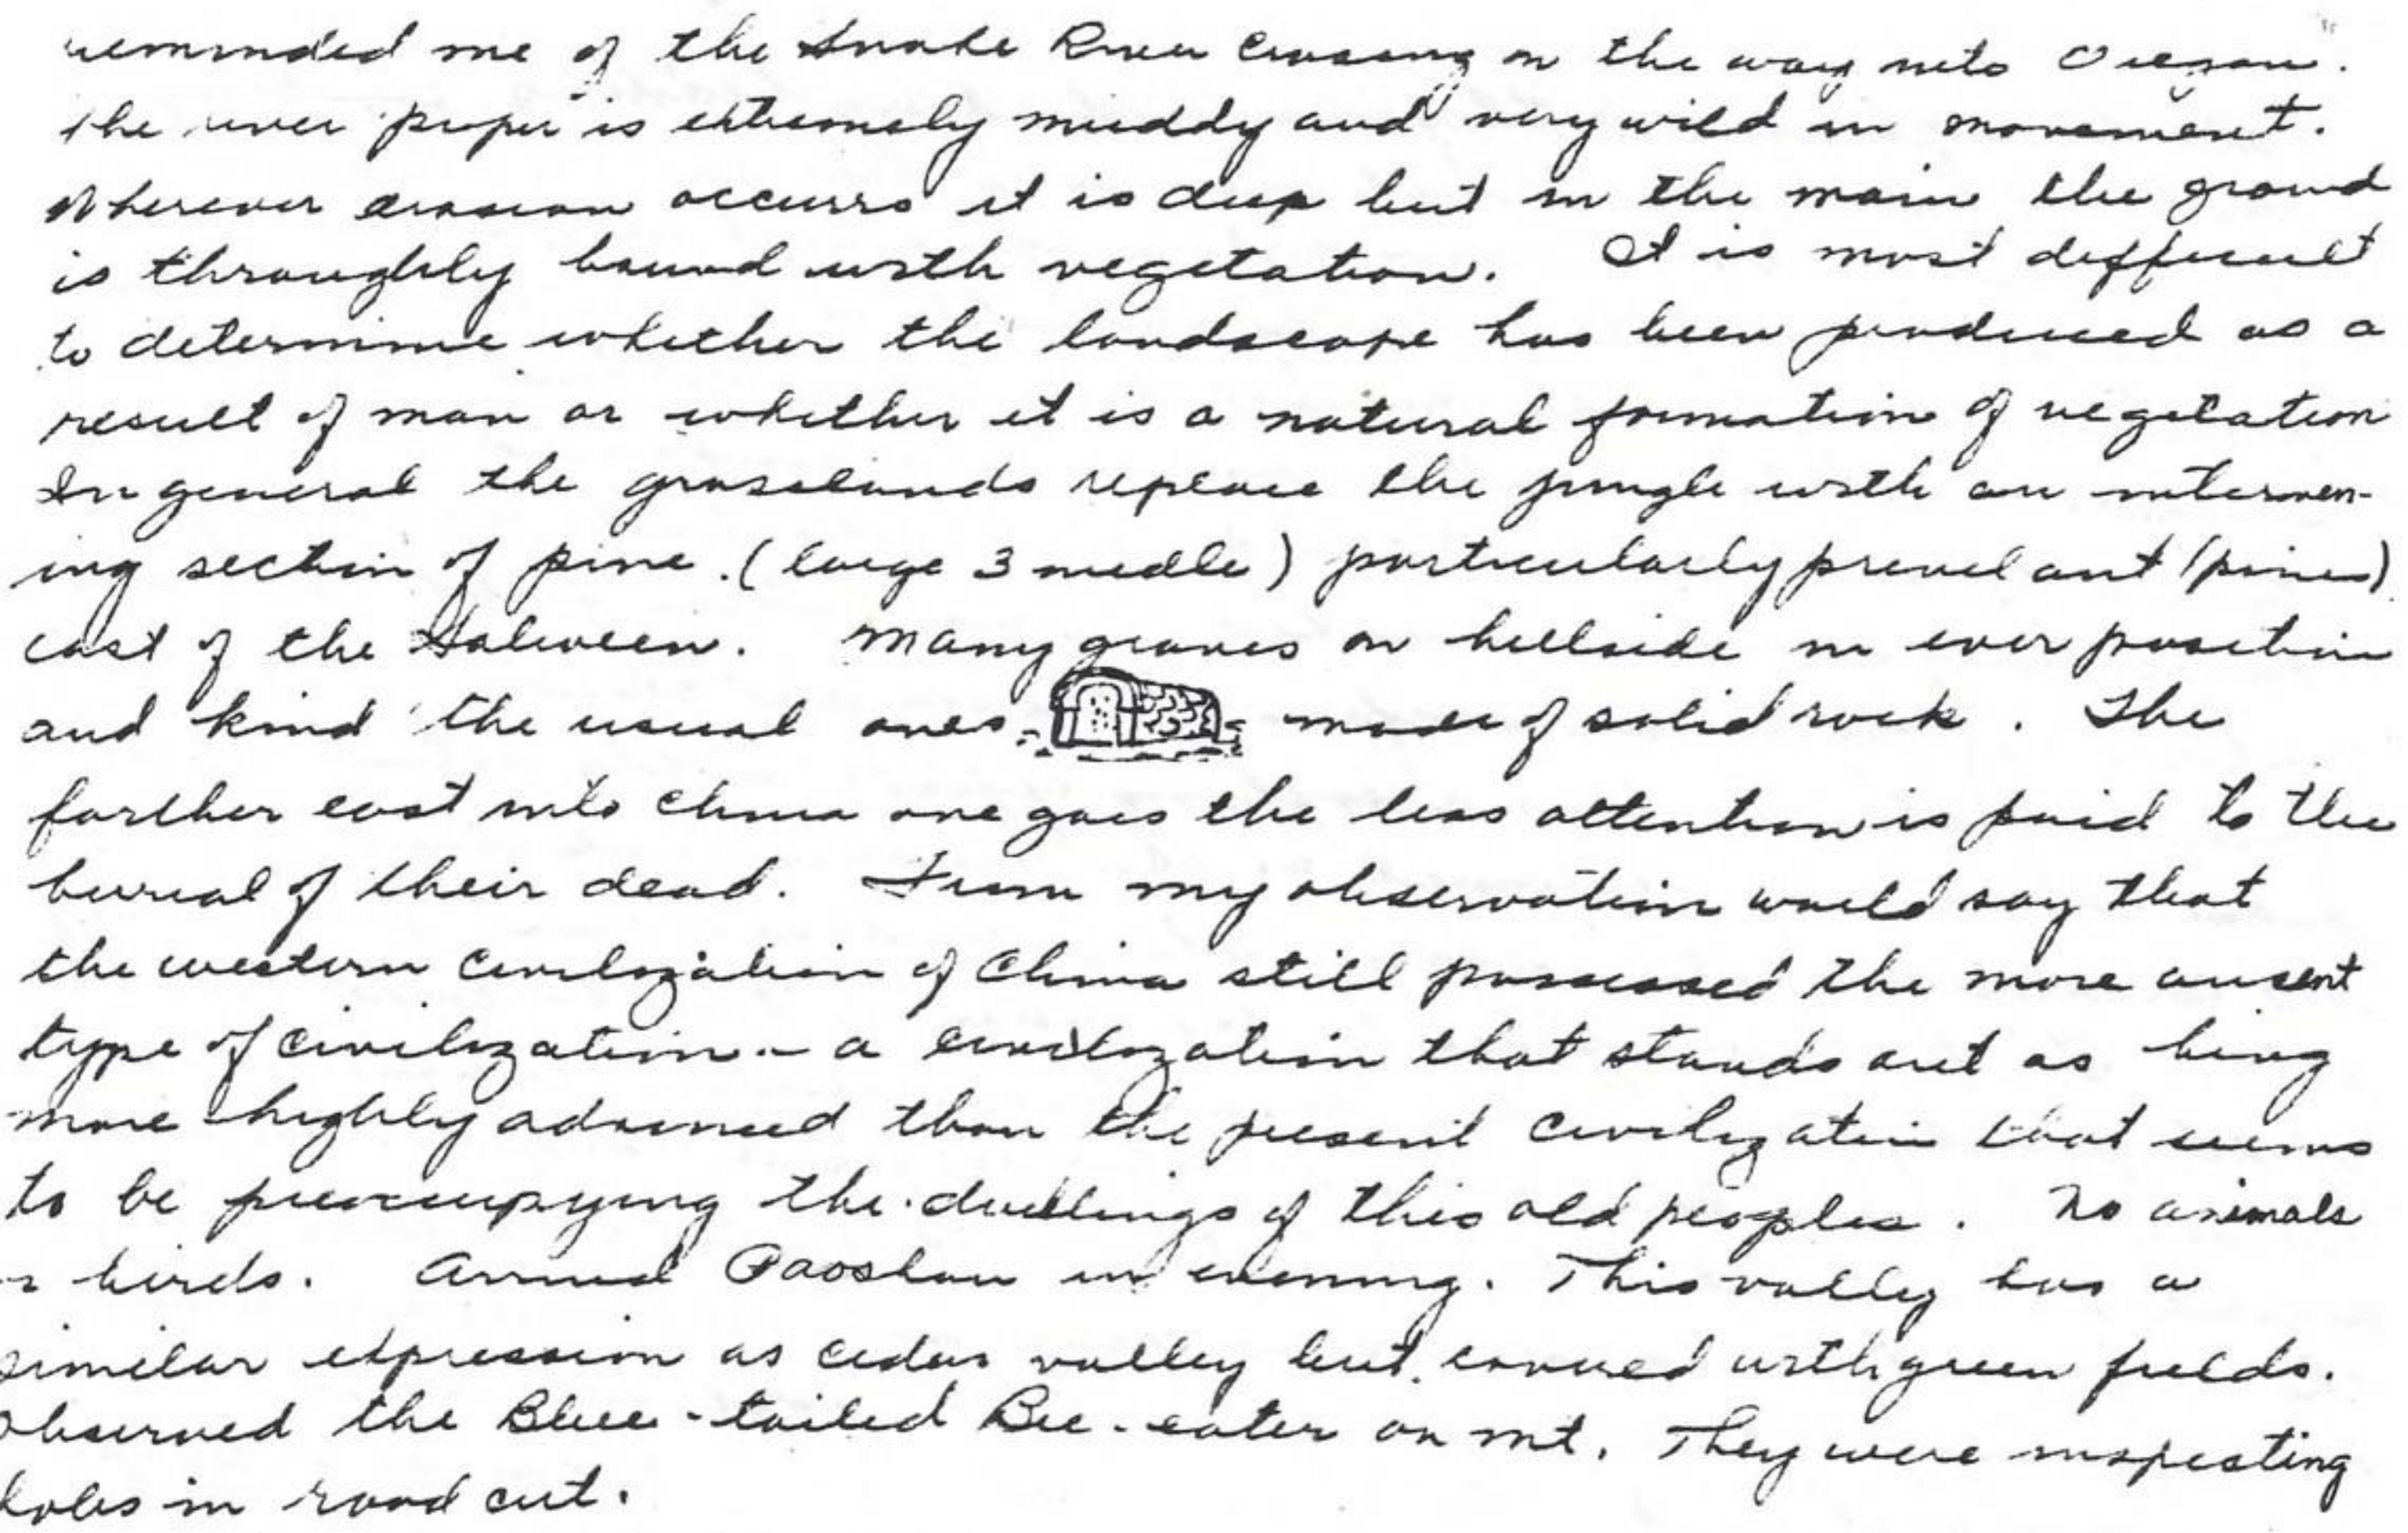 reminded me of the Snake River Crossing on the way into Oregon.
The river proper is extremely muddy and very wild in movement.
Wherever erosion occurrs it is deep but in the main the ground
is throughly bound with vegetation. It is most difficult
to determine whether the landscape has been produced as a
result of man or whether it is a natural formation of vegetation
In general the grasslands replace the jungle with an interven-
ing section of pine. (large 3 needle) particularly prevelant (pines)
east of the Salween. Many graves on hillside in ever position
and kind the usual ones made of solid rock. The
farther east into China one goes the less attention is paid to the
burial of their dead. From my observation would say that
the western civilization of China still possessed the more ancient
type of civilization - a civilization that stands out as being
more highly advanced than the present civilization that seems
to be preoccupying the dwellings of this old peoples. No animals
or birds. Arrived Paoshan in evening. This valley has a
similar expression as cedar valley but covered with green fields.
Observed the Blue-tailed Bee-eater on mt. They were inspecting
holes in road cut.